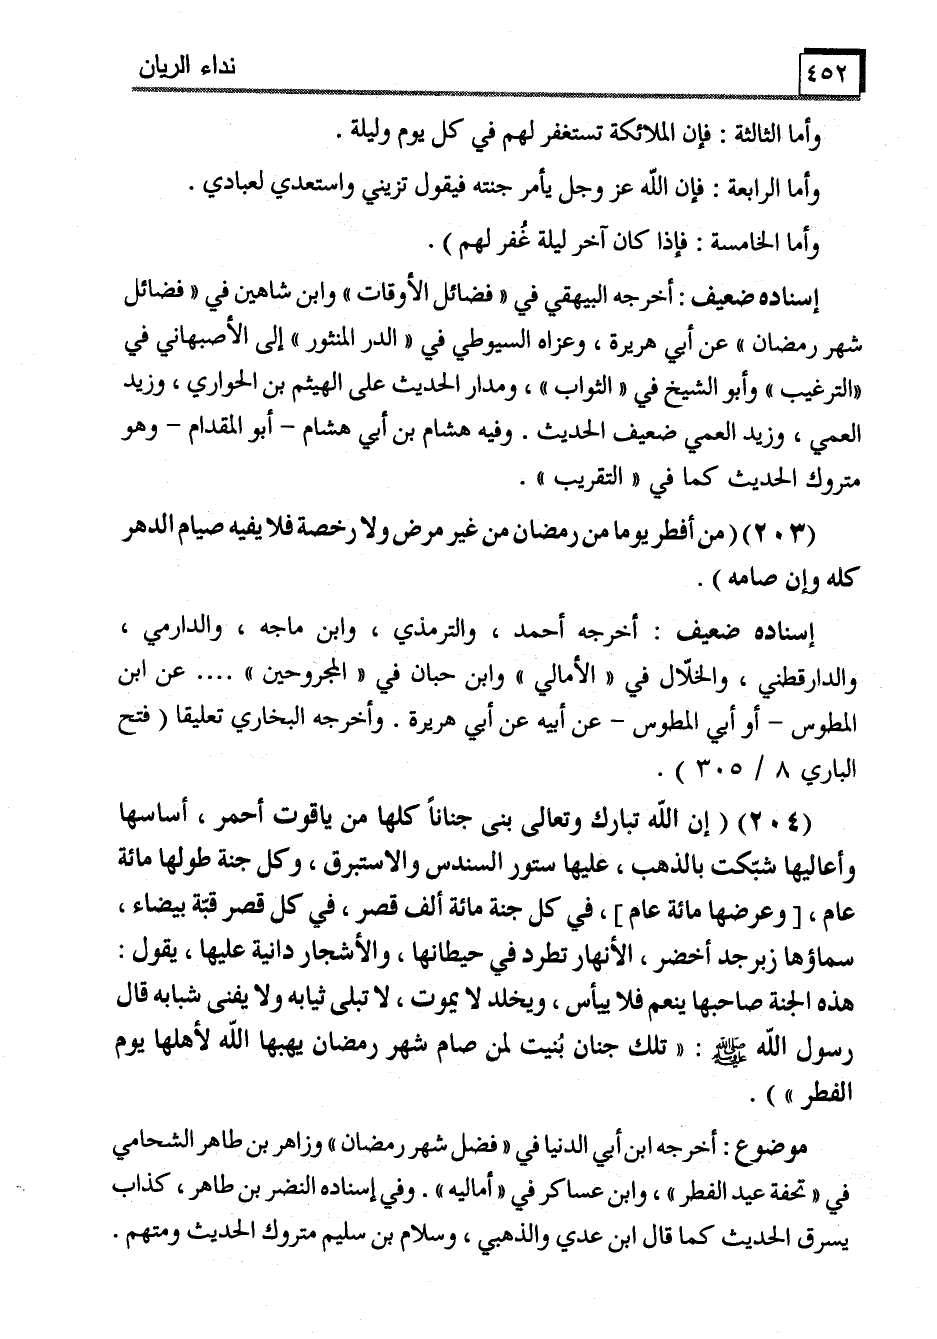 ٤٥٢
نداء الريان
وأما الثالثة : فإن الملائكة تستغفر لهم في كل يوم وليلة .
وأما الرابعة : فإن الله عز وجل يأمر جنته فيقول تزيني واستعدي لعبادي .
وأما الخامسة : فإذا كان آخر ليلة غُفر لهم ) .
إسناده ضعيف : أخرجه البيهقي في « فضائل الأوقات » وابن شاهين في « فضائل
شهر رمضان » عن أبي هريرة ، وعزاه السيوطي في « الدر المنثور » إلى الأصبهاني في
«الترغيب » وأبو الشيخ في « الثواب » ، ومدار الحديث على الهيثم بن الحواري ، وزيد
العمي ، وزيد العمي ضعيف الحديث . وفيه هشام بن أبي هشام – أبو المقدام – وهو
متروك الحديث كما في « التقريب » .
(٢٠٣) ( من أفطر يوما من رمضان من غير مرض ولا رخصة فلا يفيه صيام الدهر
كله وإن صامه ) .
إسناده ضعيف : أخرجه أحمد ، والترمذي ، وابن ماجه ، والدارمي ،
والدارقطني ، والخلّال في « الأمالي » وابن حبان في « المجروحين » .... عن ابن
المطوس – أو أبي المطوس – عن أبيه عن أبي هريرة . وأخرجه البخاري تعليقا ( فتح
الباري ٨ / ٣٠٥ ) .
(٢٠٤) ( إن الله تبارك وتعالى بنى جناناً كلها من ياقوت أحمر ، أساسها
وأعاليها شبّكت بالذهب ، عليها ستور السندس والاستبرق ، وكل جنة طولها مائة
عام ، [ وعرضها مائة عام ] ، في كل جنة مائة ألف قصر ، في كل قصر قبّة بيضاء ،
سماؤها زبرجد أخضر ، الأنهار تطرد في حيطانها ، والأشجار دانية عليها ، يقول :
هذه الجنة صاحبها ينعم فلا ييأس ، ويخلد لا يموت ، لا تبلى ثيابه ولا يفنى شبابه قال
رسول الله ﷺ : « تلك جنان بُنيت لمن صام شهر رمضان يهبها الله لأهلها يوم
الفطر » ) .
موضوع : أخرجه ابن أبي الدنيا في « فضل شهر رمضان » وزاهر بن طاهر الشحامي
في « تحفة عيد الفطر » ، وابن عساكر في « أماليه » . وفي إسناده النضر بن طاهر ، كذاب
يسرق الحديث كما قال ابن عدي والذهبي ، وسلام بن سليم متروك الحديث ومتهم .